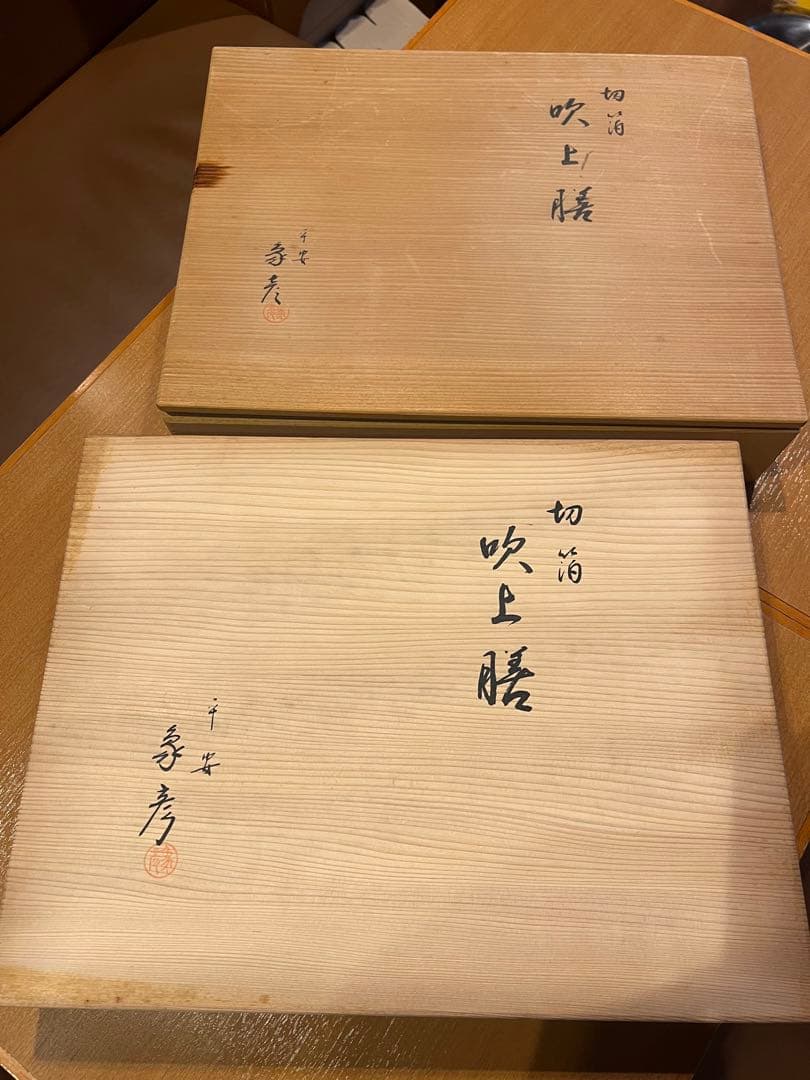 切箔
吹上膳
平安
象彦
切箔
吹上膳
平安
象彦